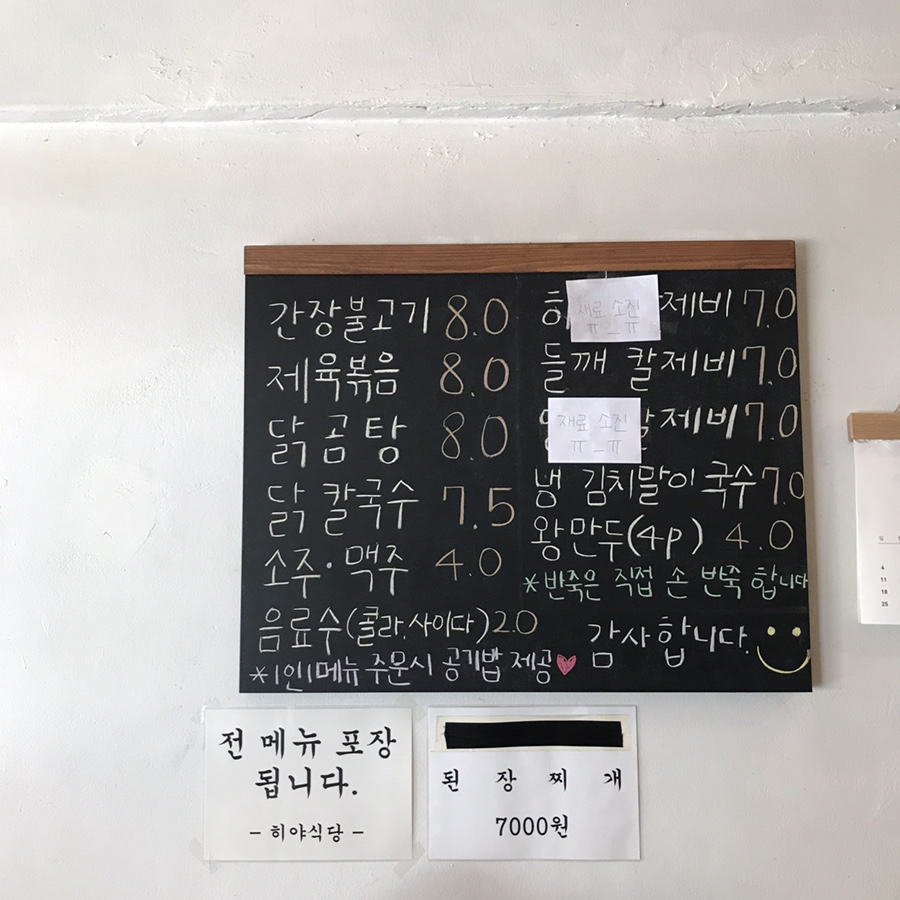 간장불고기 8.0
제육볶음 8.0
닭곰탕 8.0
닭 칼국수 7.5
소주·맥주 4.0
음료수(콜라.사이다) 2.0
*1인1메뉴 주문시 공기밥 제공♥
재료 소진 제비 7.0
ㅠ_ㅠ
들깨 칼제비 7.0
재료 소진 칼제비 7.0
ㅠ_ㅠ
냉 김치말이 국수 7.0
왕만두(4p) 4.0
*반죽은 직접 손 반죽 합니다
감사합니다.
전 메뉴 포장
됩니다.
- 히야식당 -
된장찌개
7000원
4
11
18
25